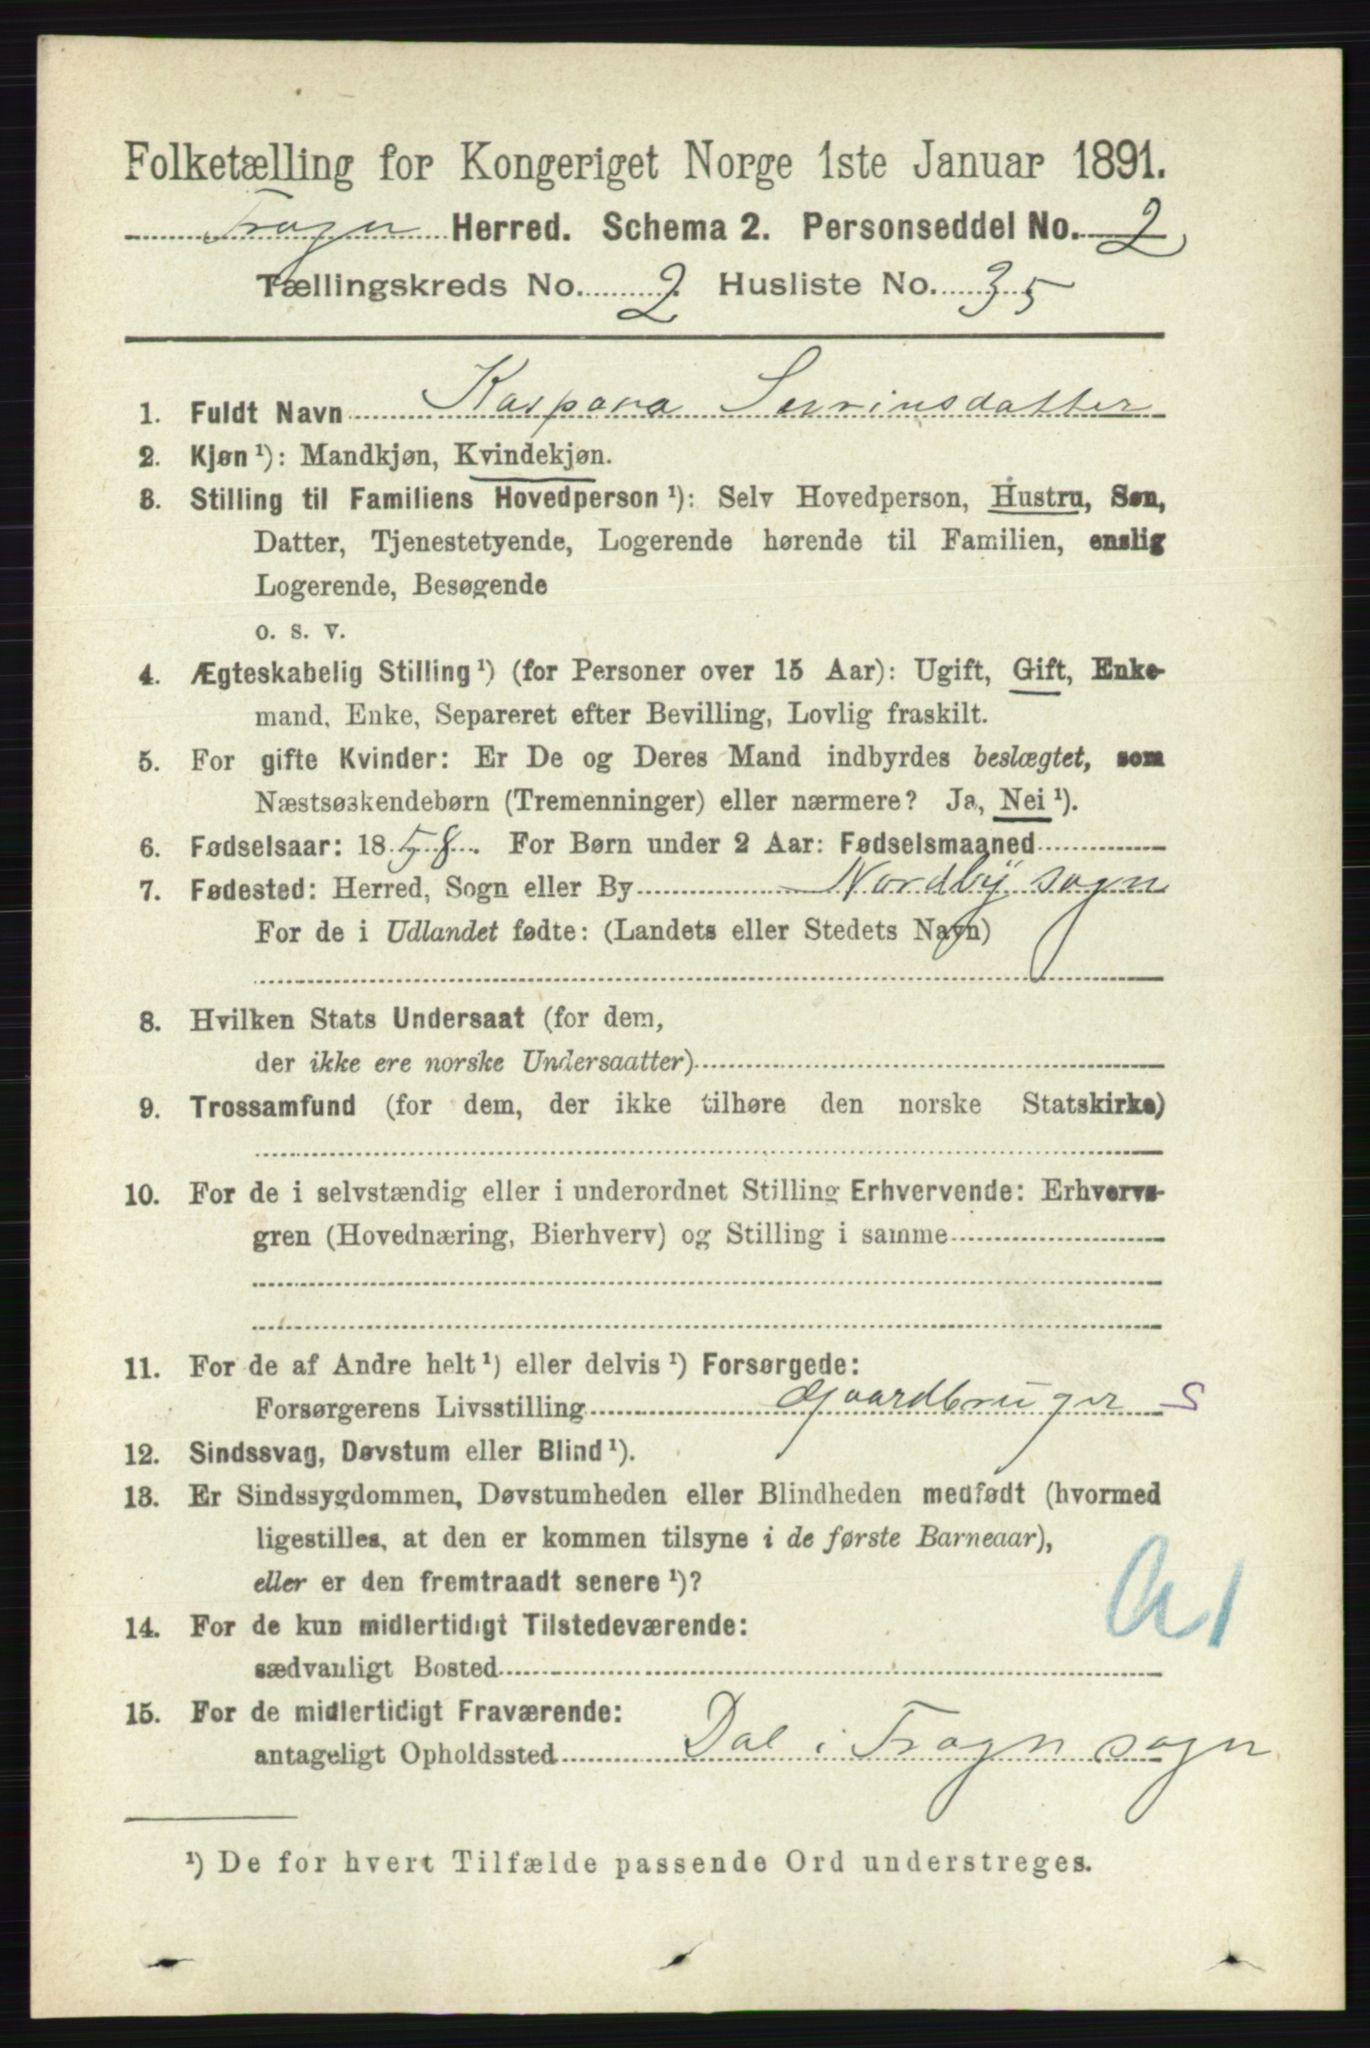 Folketælling for Kongeriget Norge 1ste Januar 1891.
Frogn Herred. Schema 2. Personseddel No. 2
Tællingskreds No. 2 Husliste No. 35
1. Fuldt Navn Kaspara Serrinsdatter
2. Kjøn ¹): Mandkjøn, Kvindekjøn.
3. Stilling til Familiens Hovedperson ¹): Selv Hovedperson, Hustru, Søn,
Datter, Tjenestetyende, Logerende hørende til Familien, enslig
Logerende, Besøgende
o. s. v.
4. Ægteskabelig Stilling ¹) (for Personer over 15 Aar): Ugift, Gift, Enke-
mand, Enke, Separeret efter Bevilling, Lovlig fraskilt.
5. For gifte Kvinder: Er De og Deres Mand indbyrdes beslægtet, som
Næstsøskendebørn (Tremenninger) eller nærmere? Ja, Nei ¹).
6. Fødselsaar: 1858. For Børn under 2 Aar: Fødselsmaaned
7. Fødested: Herred, Sogn eller By Nordby sogn
For de i Udlandet fødte: (Landets eller Stedets Navn)
8. Hvilken Stats Undersaat (for dem,
der ikke ere norske Undersaatter)
9. Trossamfund (for dem, der ikke tilhøre den norske Statskirke)
10. For de i selvstændig eller i underordnet Stilling Erhvervende: Erhvervs-
gren (Hovednæring, Bierhverv) og Stilling i samme
11. For de af Andre helt ¹) eller delvis ¹) Forsørgede:
Forsørgerens Livsstilling Gaardbruger S
12. Sindssvag, Døvstum eller Blind ¹).
13. Er Sindssygdommen, Døvstumheden eller Blindheden medfødt (hvormed
ligestilles, at den er kommen tilsyne i de første Barneaar),
eller er den fremtraadt senere ¹)?
14. For de kun midlertidigt Tilstedeværende:
sædvanligt Bosted
15. For de midlertidigt Fraværende:
antageligt Opholdssted Dal i Frogn sogn
¹) De for hvert Tilfælde passende Ord understreges.